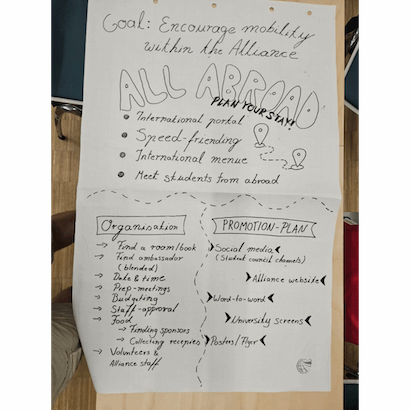 Goal: Encourage mobility
within the Alliance
ALL ABROAD
PLAN YOUR STAY!
International portal
Speed-friending
International menue
Meet students from abroad
Organisation
→ Find a room/book
→ Find ambassador
(blended)
→ Date & time
→ Prep-meetings
→ Budgeting
→ Staff-approval
→ Food
→ Finding sponsors
→ Collecting recepies
→ Volunteers &
Alliance staff
PROMOTION-PLAN
Social media
(Student council channels)
Alliance website
Word-to-word
University screens
Posters/Flyer